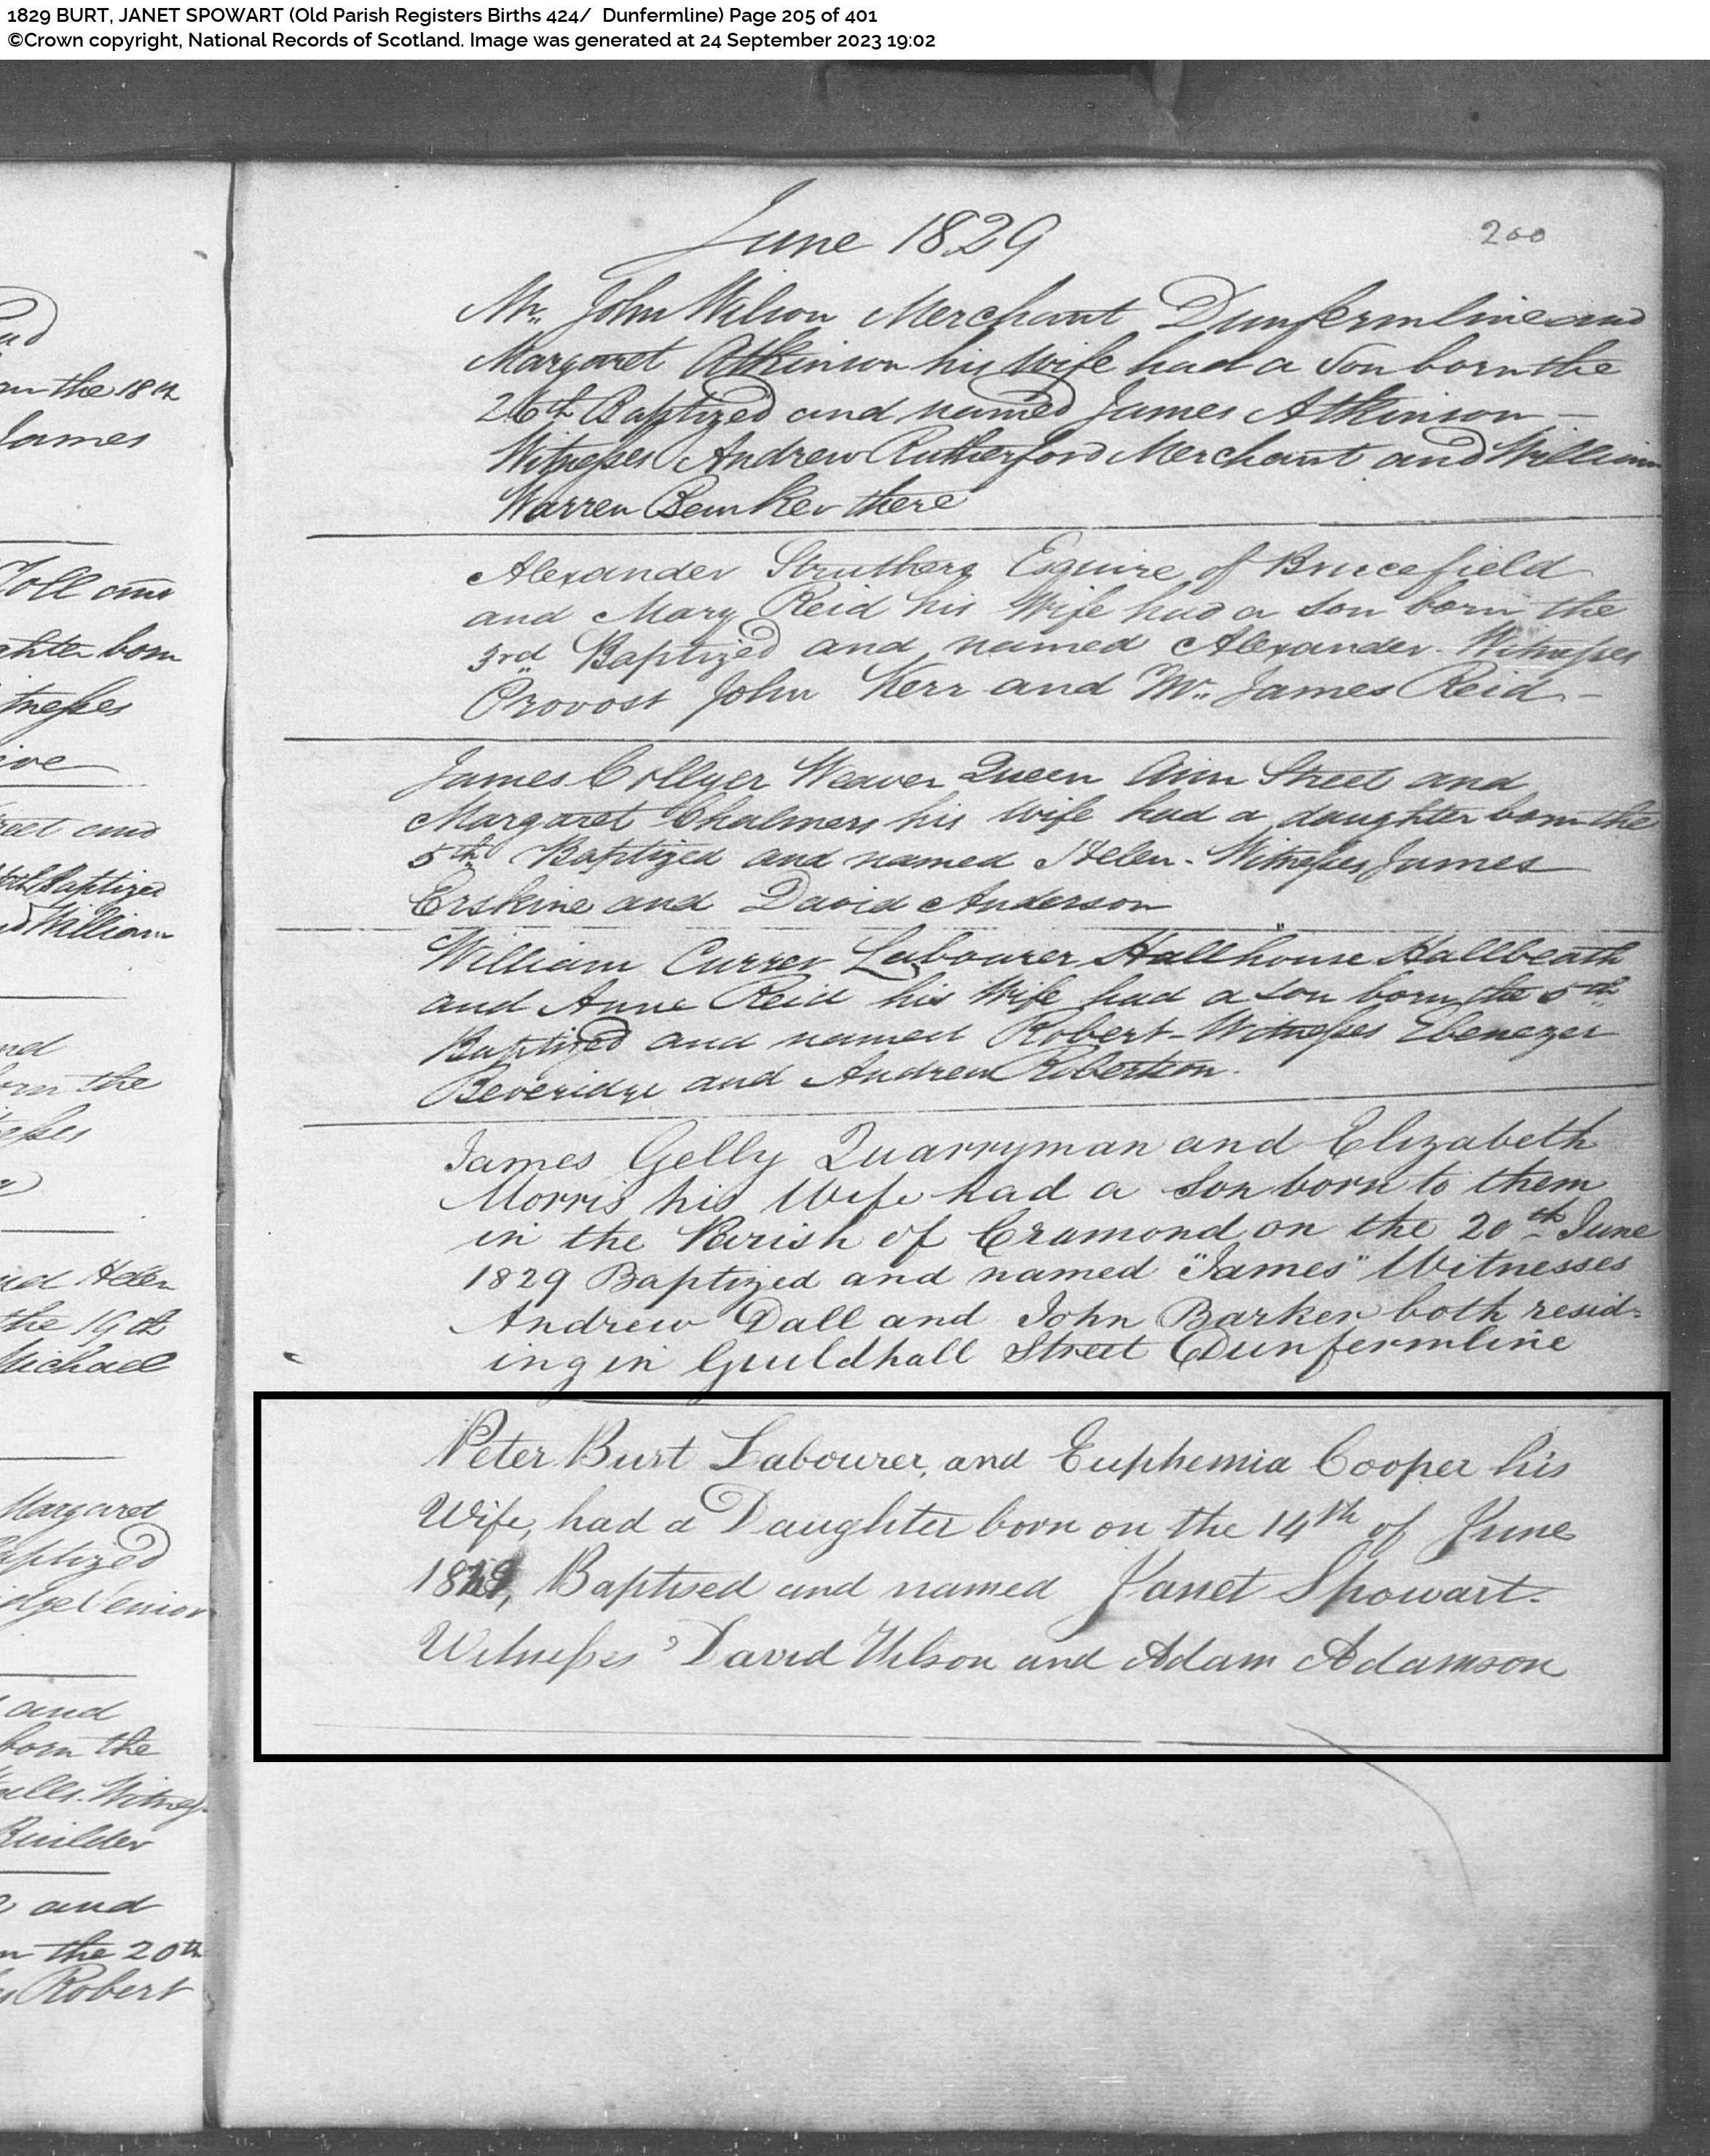 1829 BURT, JANET SPOWART (Old Parish Registers Births 424/ Dunfermline) Page 205 of 401
©Crown copyright, National Records of Scotland. Image was generated at 24 September 2023 19:02
June 1829
200
Mr. John Wilson Merchant Dunfermline and
Margaret Atkinson his Wife had a Son born the
26th Baptized and named James Atkinson –
Witnesses Andrew Rutherford Merchant and William
Warren Banker there
Alexander Struthers Esquire of Brucefield
and Mary Reid his Wife had a Son born the
3rd Baptized and named Alexander - Witnesses
Provost John Kerr and Mr. James Reid –
James Collyer Weaver Queen Ann Street and
Margaret Chalmers his Wife had a daughter born the
5th Baptized and named Helen - Witnesses James
Erskine and David Anderson
William Currer Labourer Hallhouse Hallbeath
and Anne Reid his Wife had a Son born the 5th
Baptized and named Robert - Witnesses Ebenezer
Beveridge and Andrew Robertson.
James Gelly Quarryman and Elizabeth
Morris his Wife had a Son born to them
in the Parish of Cramond on the 20th June
1829 Baptized and named "James" Witnesses
Andrew Dall and John Barker both resid=
ing in Guildhall Street Dunfermline
Peter Burt Labourer, and Euphemia Cooper his
Wife, had a Daughter born on the 14th of June
1829, Baptised and named Janet Spowart.
Witnesses David Wilson and Adam Adamson
on the 18th
James
Toll and
ghter born
itnesses
reet and
Baptized
William
born the
and Helen
the 19th
Michael
Margaret
Baptized
Senior
and
born the
Builder
and
the 20th
Robert